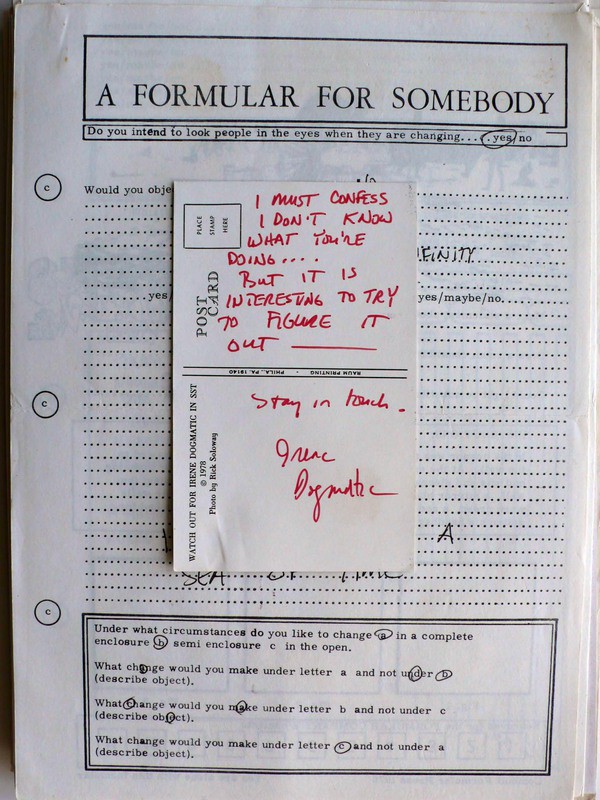 A FORMULAR FOR SOMEBODY
Do you intend to look people in the eyes when they are changing.... yes/no
c
Would you obje
yes/
yes/maybe/no
I MUST CONFESS
I DON'T KNOW
WHAT YOU'RE
DOING....
BUT IT IS
INTERESTING TO TRY
TO FIGURE IT
OUT
PLACE
STAMP
HERE
POST
CARD
RAUM PRINTING · PHILA., PA. 19140
WATCH OUT FOR IRENE DOGMATIC IN SST
© 1978
Photo by Rick Soloway
Stay in touch.
Irene
Dogmatic
c
A
SEA OF
c
Under what circumstances do you like to change a in a complete
enclosure b semi enclosure c in the open.
What change would you make under letter a and not under b
(describe object).
What change would you make under letter b and not under c
(describe object).
What change would you make under letter c and not under a
(describe object).